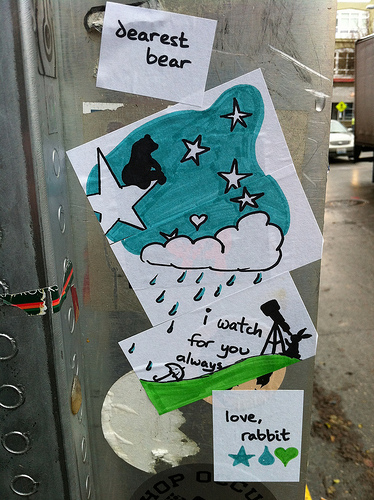 dearest
bear
i watch
for you
always
love,
rabbit